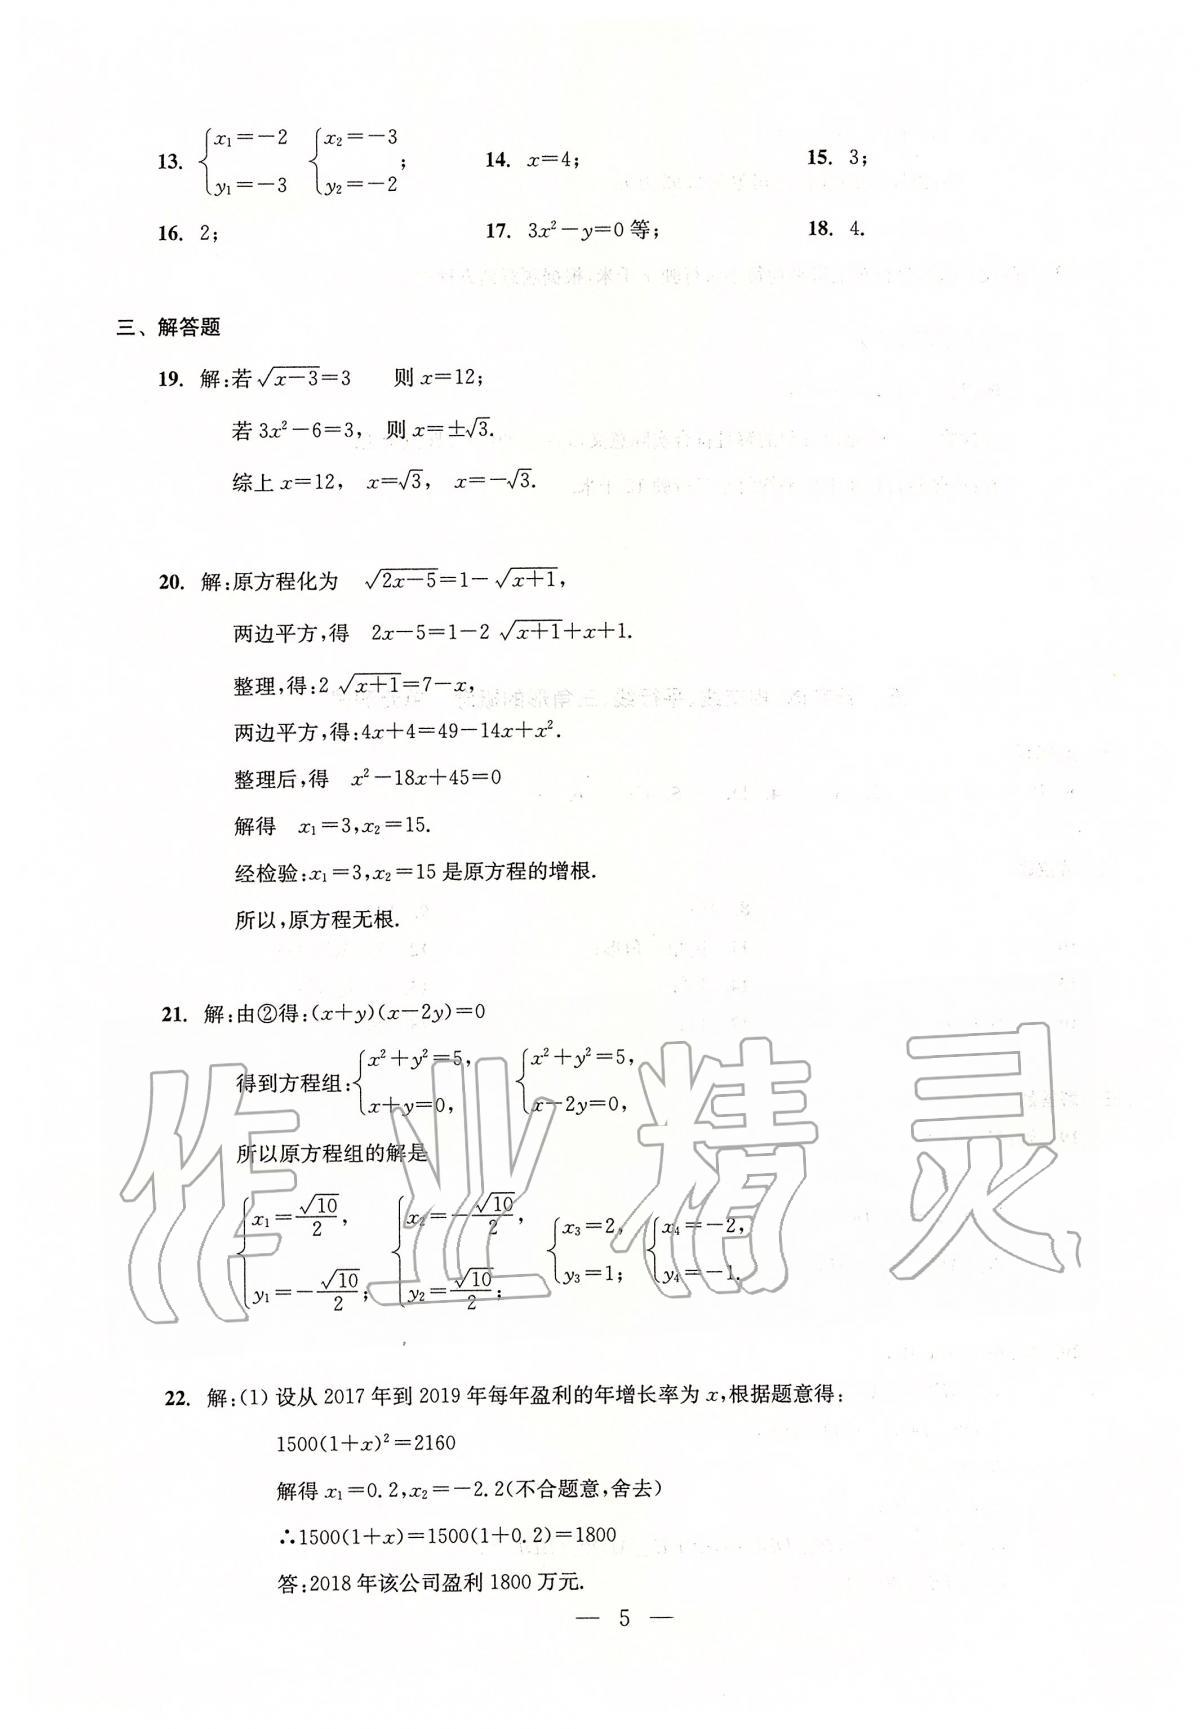 13. {x₁=-2, y₁=-3 {x₂=-3, y₂=-2; 14. x=4; 15. 3;
16. 2; 17. 3x²-y=0等; 18. 4.
三、解答题
19. 解:若√(x-3)=3 则x=12;
若3x²-6=3, 则x=±√3.
综上x=12, x=√3, x=-√3.
20. 解:原方程化为 √(2x-5)=1-√(x+1),
两边平方,得 2x-5=1-2√(x+1)+x+1.
整理,得:2√(x+1)=7-x,
两边平方,得:4x+4=49-14x+x².
整理后,得 x²-18x+45=0
解得 x₁=3,x₂=15.
经检验:x₁=3,x₂=15是原方程的增根.
所以,原方程无根.
21. 解:由②得:(x+y)(x-2y)=0
得到方程组:{x²+y²=5, x+y=0, {x²+y²=5, x-2y=0,
所以原方程组的解是
{x₁=√10/2, y₁=-√10/2; {x₂=-√10/2, y₂=√10/2; {x₃=2, y₃=1; {x₄=-2, y₄=-1.
作业精灵
22. 解:(1) 设从2017年到2019年每年盈利的年增长率为x,根据题意得:
1500(1+x)²=2160
解得x₁=0.2,x₂=-2.2(不合题意,舍去)
∴1500(1+x)=1500(1+0.2)=1800
答:2018年该公司盈利1800万元.
— 5 —